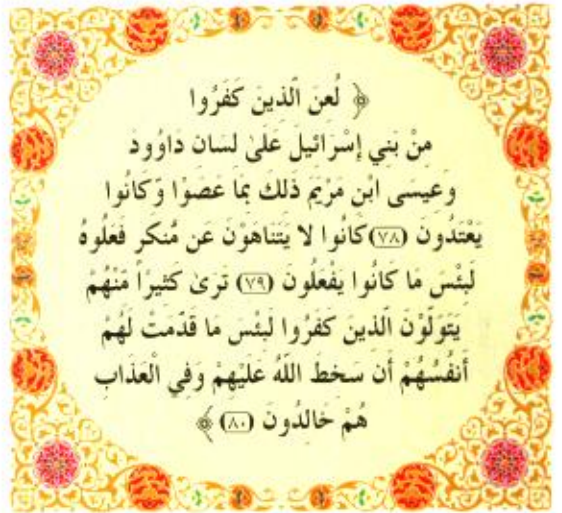 ﴿ لُعِنَ الَّذِينَ كَفَرُوا
مِنْ بَنِي إِسْرَائِيلَ عَلىٰ لِسَانِ دَاوُودَ
وَعِيسَى ابْنِ مَرْيَمَ ذَلِكَ بِمَا عَصَوْا وَّكَانُوا
يَعْتَدُونَ (٧٨) كَانُوا لا يَتَنَاهَوْنَ عَن مُّنكَرٍ فَعَلُوهُ
لَبِئْسَ مَا كَانُوا يَفْعَلُونَ (٧٩) تَرَىٰ كَثِيراً مِّنْهُمْ
يَتَوَلَّوْنَ الَّذِينَ كَفَرُوا لَبِئْسَ مَا قَدَّمَتْ لَهُمْ
أَنفُسُهُمْ أَن سَخِطَ اللَّهُ عَلَيْهِمْ وَفِي الْعَذَابِ
هُمْ خَالِدُونَ (٨٠) ﴾